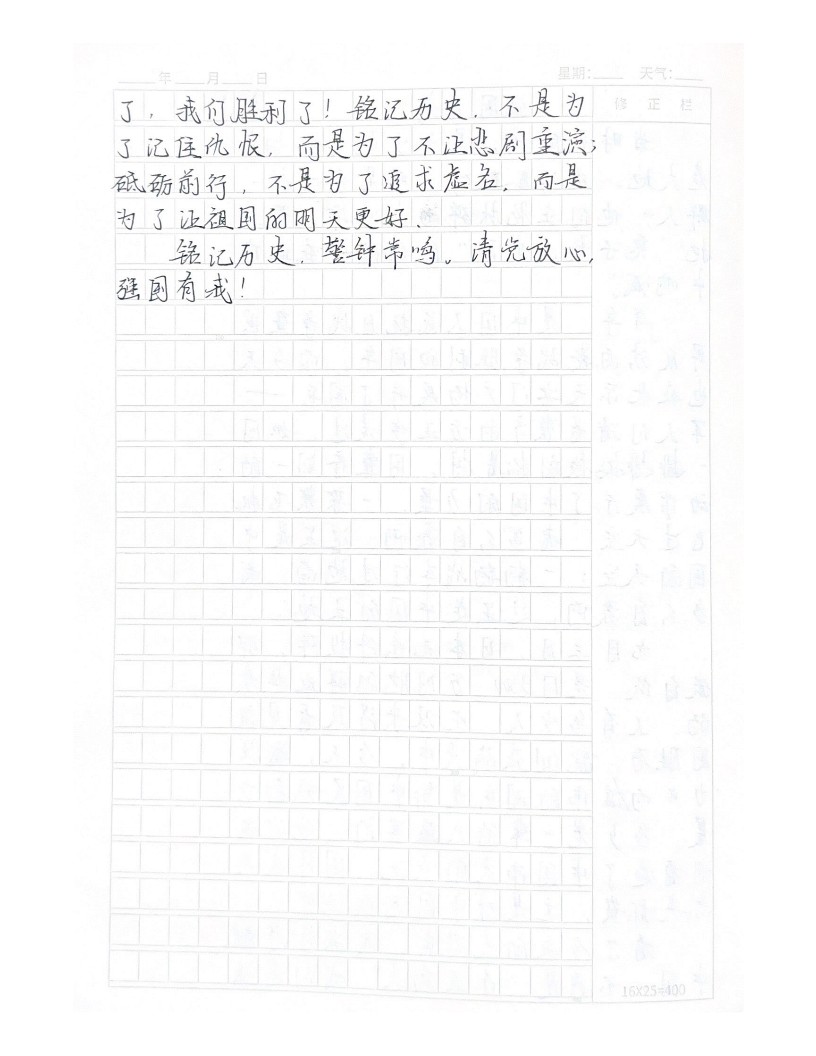 年 月 日 星期: 天气:
修正栏
了，我们胜利了！铭记历史，不是为
了记住仇恨，而是为了不让悲剧重演；
砥砺前行，不是为了追求虚名，而是
为了让祖国的明天更好．
铭记历史，警钟常鸣。请党放心，
强国有我！
16X25=400